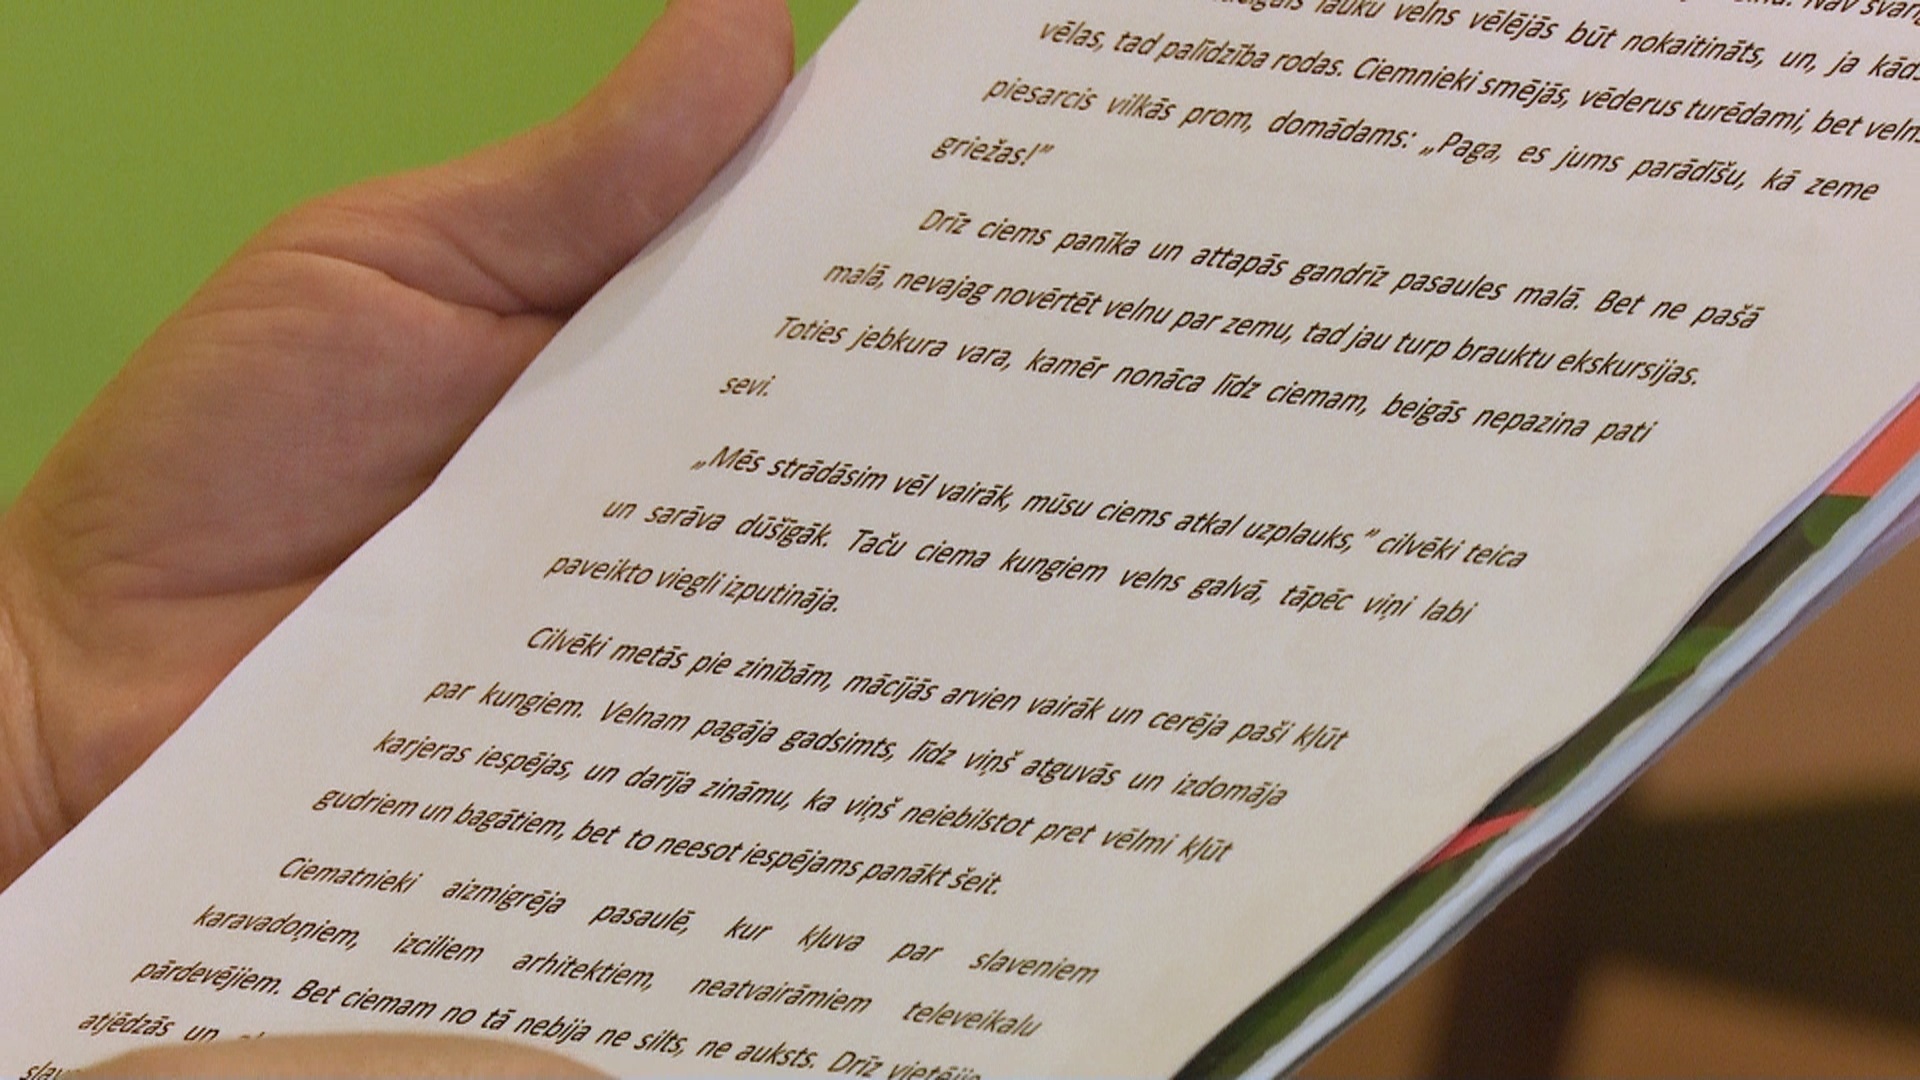 lauku velns vēlējās būt nokaitināts, un, ja kāds
vēlas, tad palīdzība rodas. Ciemnieki smējās, vēderus turēdami, bet velns
piesarcis vilkās prom, domādams: „Paga, es jums parādīšu, kā zeme
griežas!”
Drīz ciems panīka un attapās gandrīz pasaules malā. Bet ne pašā
malā, nevajag novērtēt velnu par zemu, tad jau turp brauktu ekskursijas.
Toties jebkura vara, kamēr nonāca līdz ciemam, beigās nepazina pati
sevi.
„Mēs strādāsim vēl vairāk, mūsu ciems atkal uzplauks,” cilvēki teica
un sarāva dūšīgāk. Taču ciema kungiem velns galvā, tāpēc viņi labi
paveikto viegli izputināja.
Cilvēki metās pie zinībām, mācījās arvien vairāk un cerēja paši kļūt
par kungiem. Velnam pagāja gadsimts, līdz viņš atguvās un izdomāja
karjeras iespējas, un darīja zināmu, ka viņš neiebilstot pret vēlmi kļūt
gudriem un bagātiem, bet to neesot iespējams panākt šeit.
Ciematnieki aizmigrēja pasaulē, kur kļuva par slaveniem
karavadoņiem, izciliem arhitektiem, neatvairāmiem televeikalu
pārdevējiem. Bet ciemam no tā nebija ne silts, ne auksts. Drīz vietējie
atjēdzās un